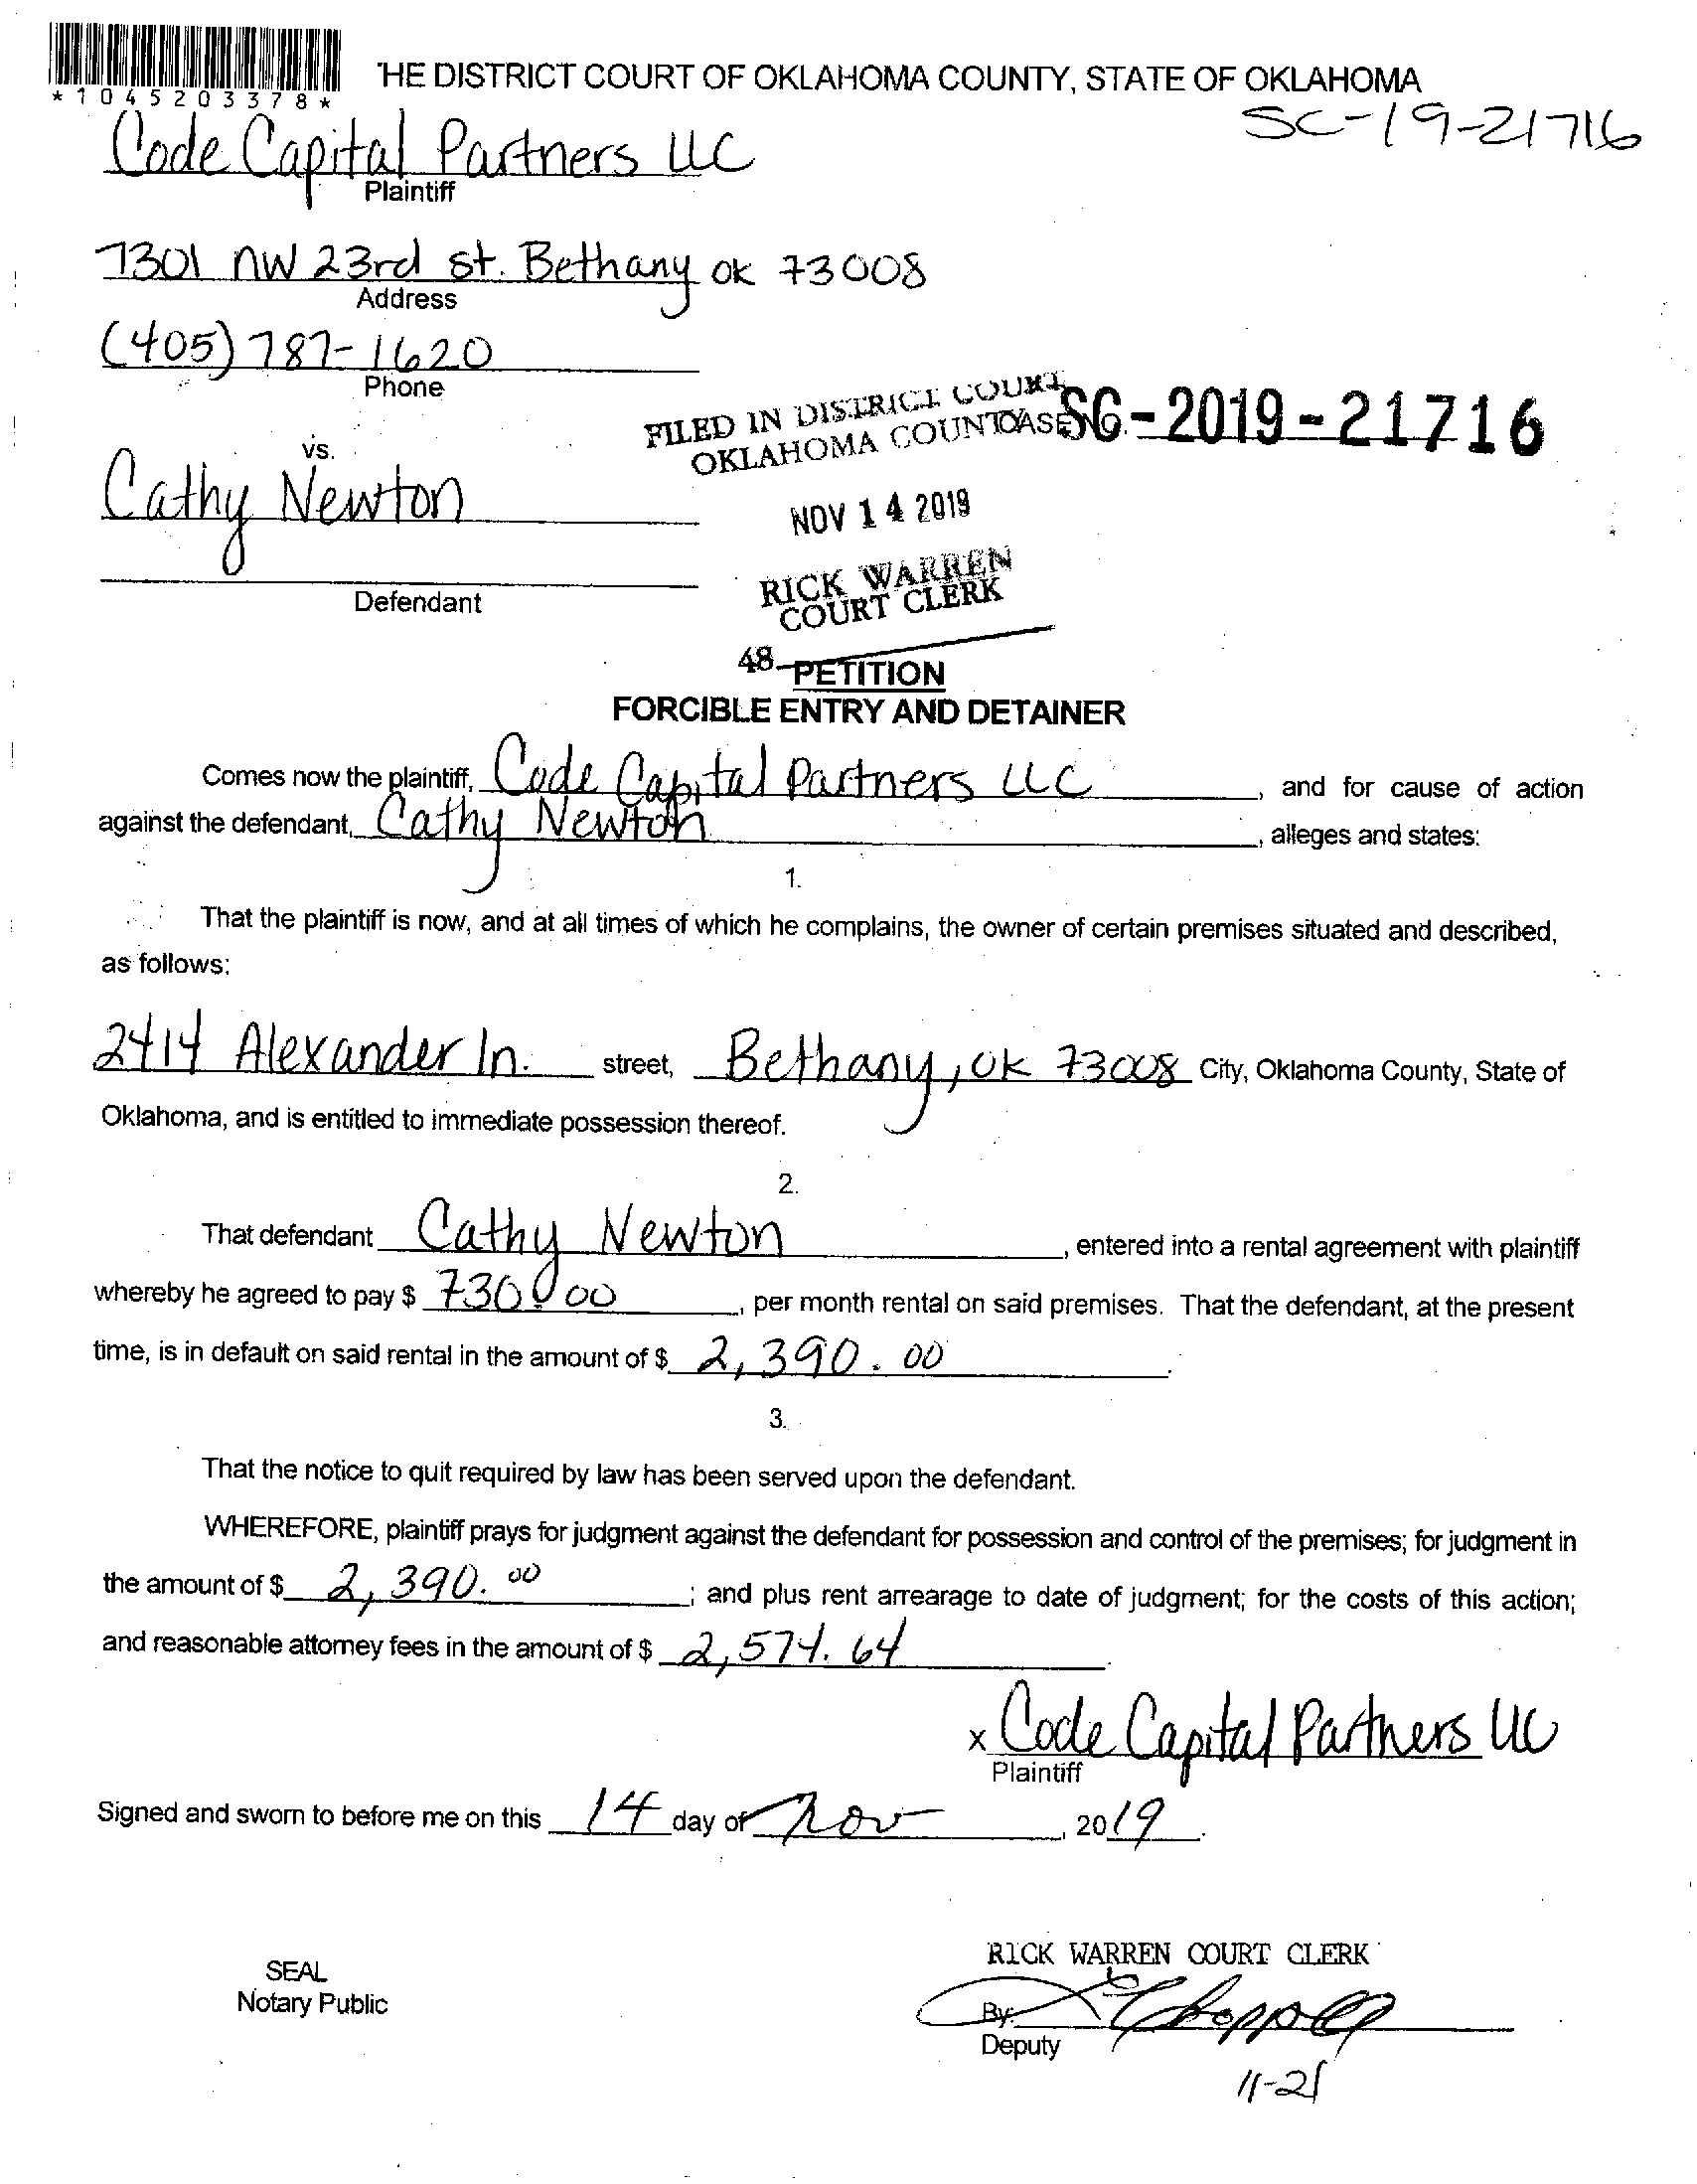 *1045203378*
THE DISTRICT COURT OF OKLAHOMA COUNTY, STATE OF OKLAHOMA
SC-19-21716
Code Capital Partners LLC
Plaintiff
7301 NW 23rd st. Bethany OK 73008
Address
(405) 787-1620
Phone
FILED IN DISTRICT COURT
OKLAHOMA COUNTY
CASE NO. SC-2019-21716
vs.
Cathy Newton
NOV 14 2019
RICK WARREN
COURT CLERK
Defendant
48
PETITION
FORCIBLE ENTRY AND DETAINER
Comes now the plaintiff, Code Capital Partners LLC, and for cause of action
against the defendant, Cathy Newton, alleges and states:
1.
That the plaintiff is now, and at all times of which he complains, the owner of certain premises situated and described,
as follows:
2414 Alexander ln. street, Bethany, OK 73008 City, Oklahoma County, State of
Oklahoma, and is entitled to immediate possession thereof.
2.
That defendant Cathy Newton, entered into a rental agreement with plaintiff
whereby he agreed to pay $ 730.00, per month rental on said premises. That the defendant, at the present
time, is in default on said rental in the amount of $ 2,390.00.
3.
That the notice to quit required by law has been served upon the defendant.
WHEREFORE, plaintiff prays for judgment against the defendant for possession and control of the premises; for judgment in
the amount of $ 2,390.00; and plus rent arrearage to date of judgment; for the costs of this action;
and reasonable attorney fees in the amount of $ 2,574.64.
x Code Capital Partners LLC
Plaintiff
Signed and sworn to before me on this 14 day of Nov, 2019.
RICK WARREN COURT CLERK
SEAL
Notary Public
By:
Deputy
11-21